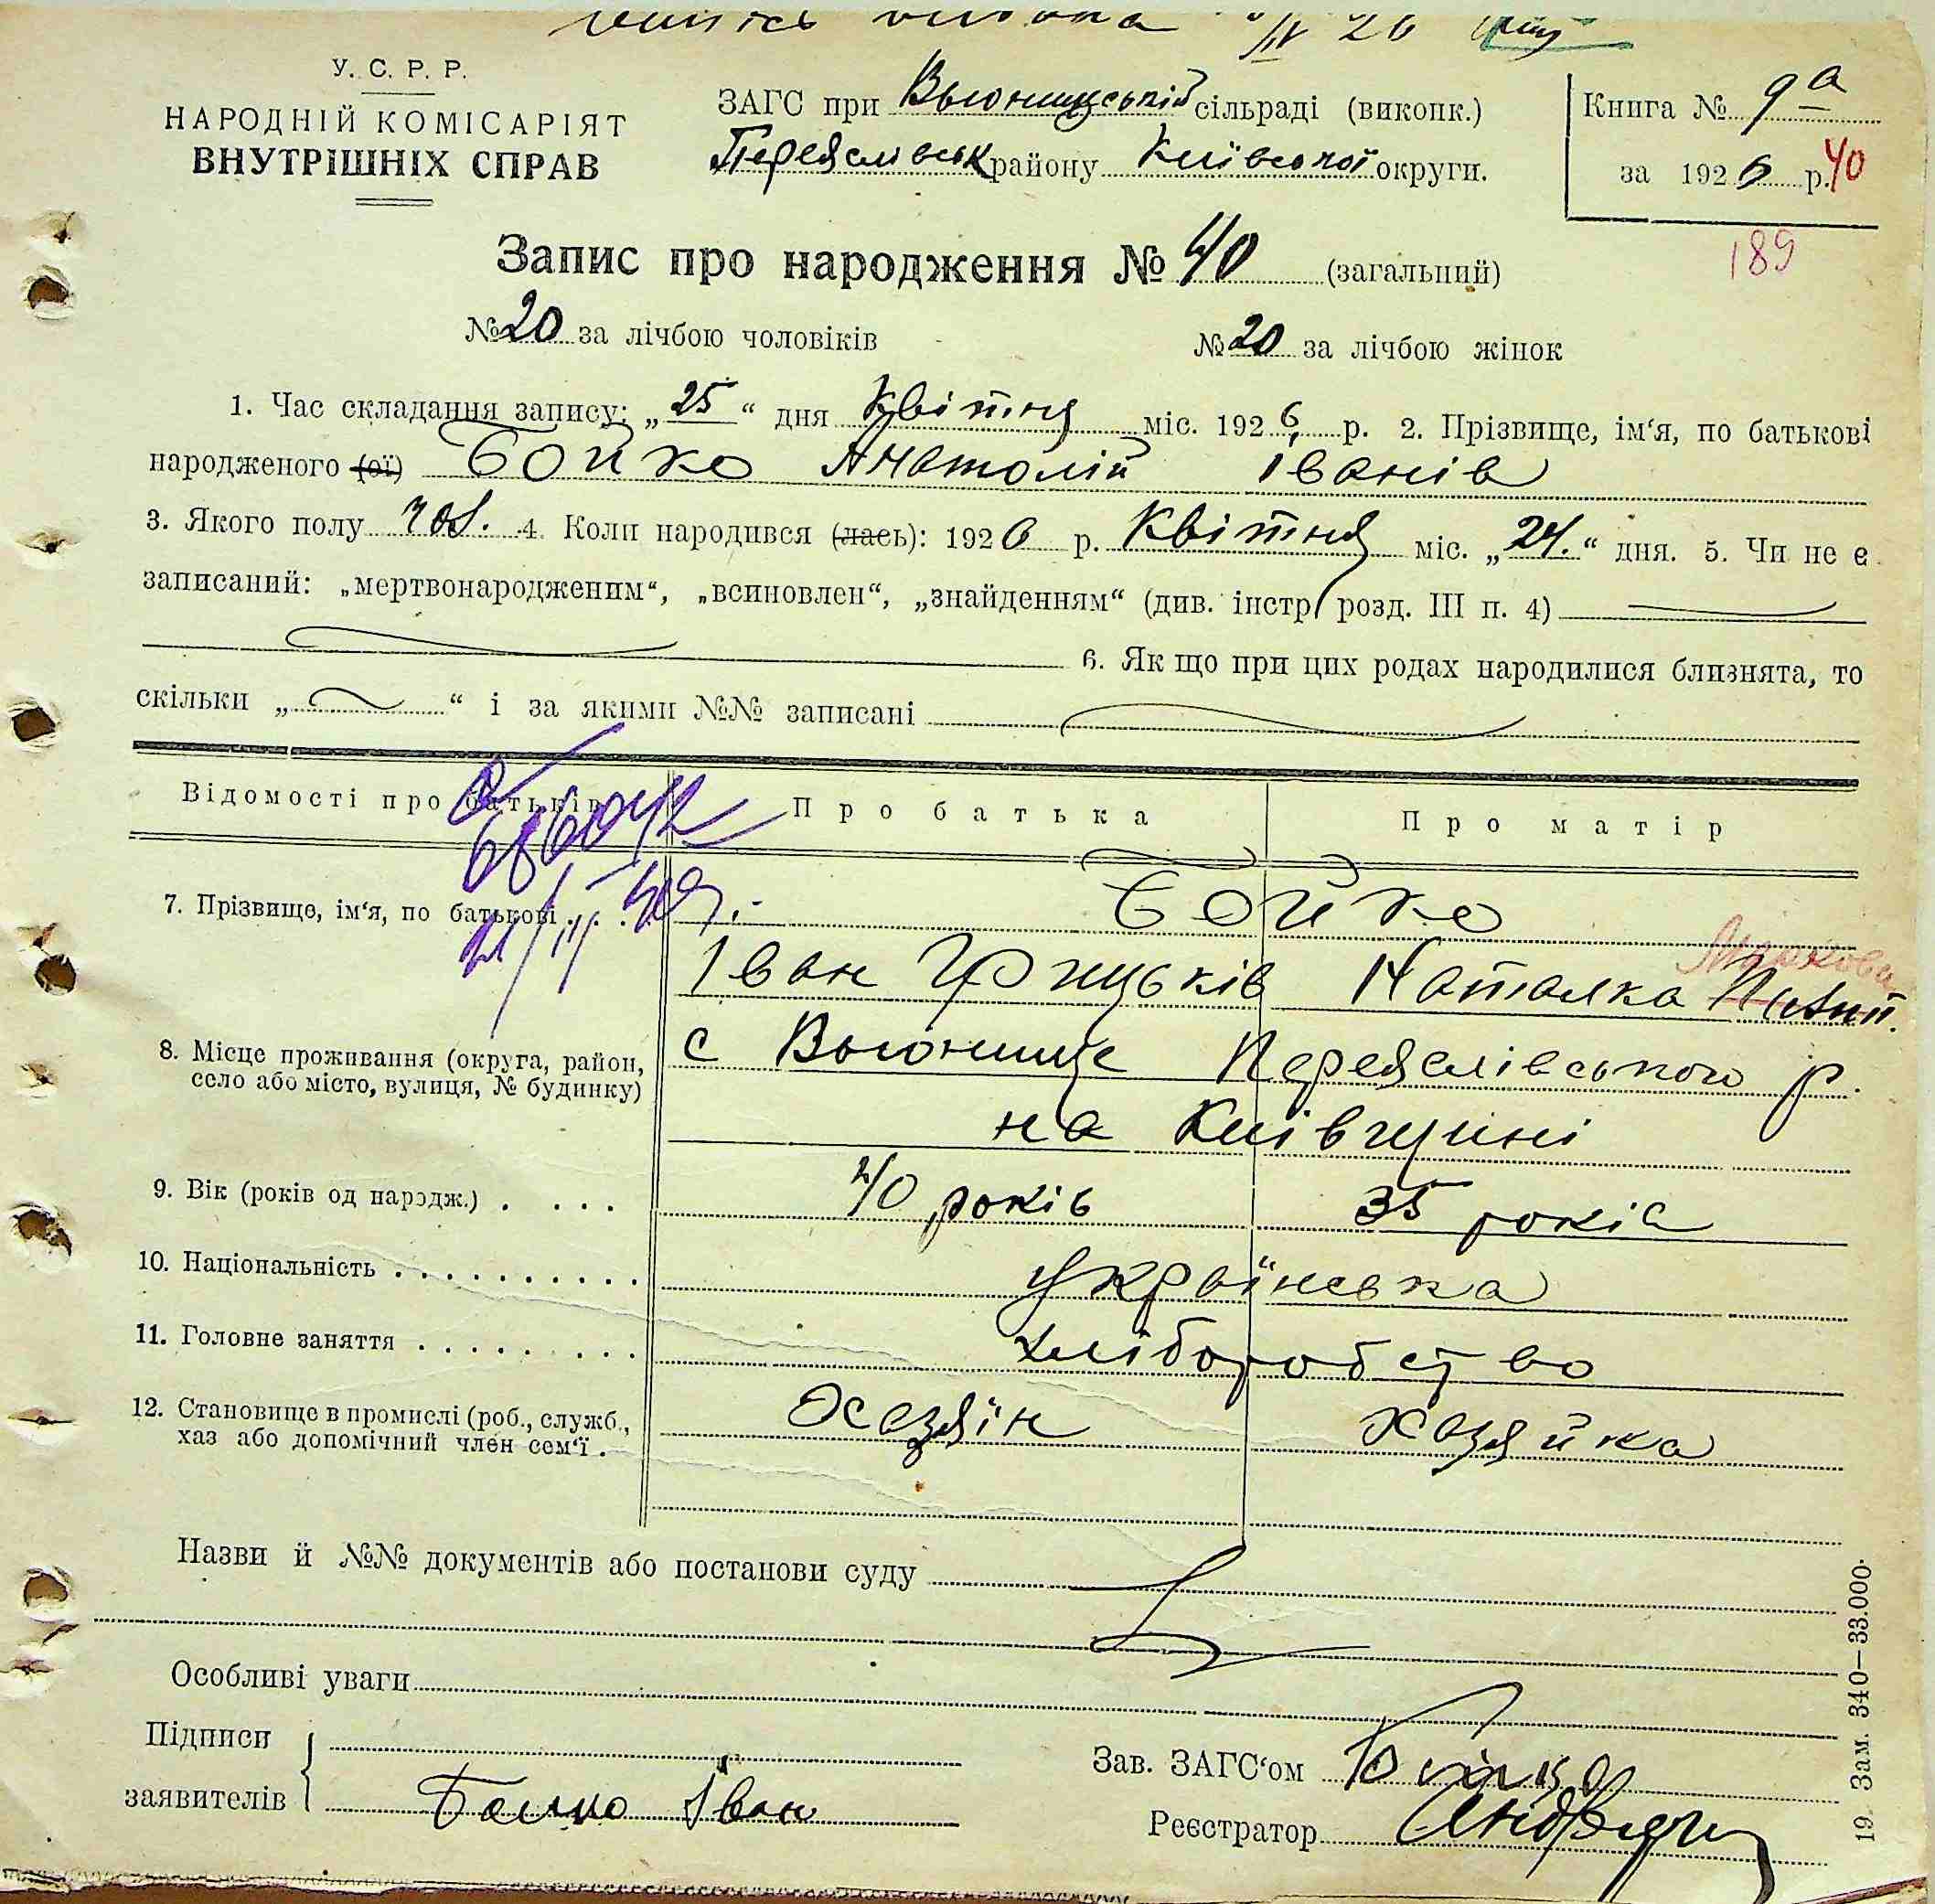 У. С. Р. Р.
НАРОДНІЙ КОМІСАРІЯТ
ВНУТРІШНІХ СПРАВ
ЗАГС при Вьюнищській сільраді (виконк.)
Переяслівськ району Київської округи.
Книга № 9а
за 1926 р. 40
189
Запис про народження № 40 (загальний)
№ 20 за лічбою чоловіків № 20 за лічбою жінок
1. Час складання запису: „25“ дня Квітня міс. 1926 р. 2. Прізвище, ім‘я, по батькові
народженого (ої) Бойко Анатолій Іванів
3. Якого полу чол. 4. Коли народився (лась): 1926 р. Квітня міс. „24.“ дня. 5. Чи не є
записаний: „мертвонародженим“, „всиновлен“, „знайденням“ (див. інстр. розд. III п. 4)
6. Як що при цих родах народилися близнята, то
скільки „ “ і за якими №№ записані
Відомості про батьків Про батька Про матір
7. Прізвище, ім‘я, по батькові . . . Бойко
Іван Грицьків Наталка
8. Місце проживання (округа, район,
село або місто, вулиця, № будинку)
с Вьюнище Переяслівського р.
на Київщині
9. Вік (років од народж.) . . . . 40 років 35 років
10. Національність . . . . . . . . . . українська
11. Головне заняття . . . . . . . . . хліборобство
12. Становище в промислі (роб., служб.,
хаз або допомічний член сем‘ї .
Хазяїн хазяйка
Назви й №№ документів або постанови суду
Особливі уваги
Підписи
заявителів Бойко Іван
Зав. ЗАГС‘ом
Реєстратор
19. Зам. 340—33.000.